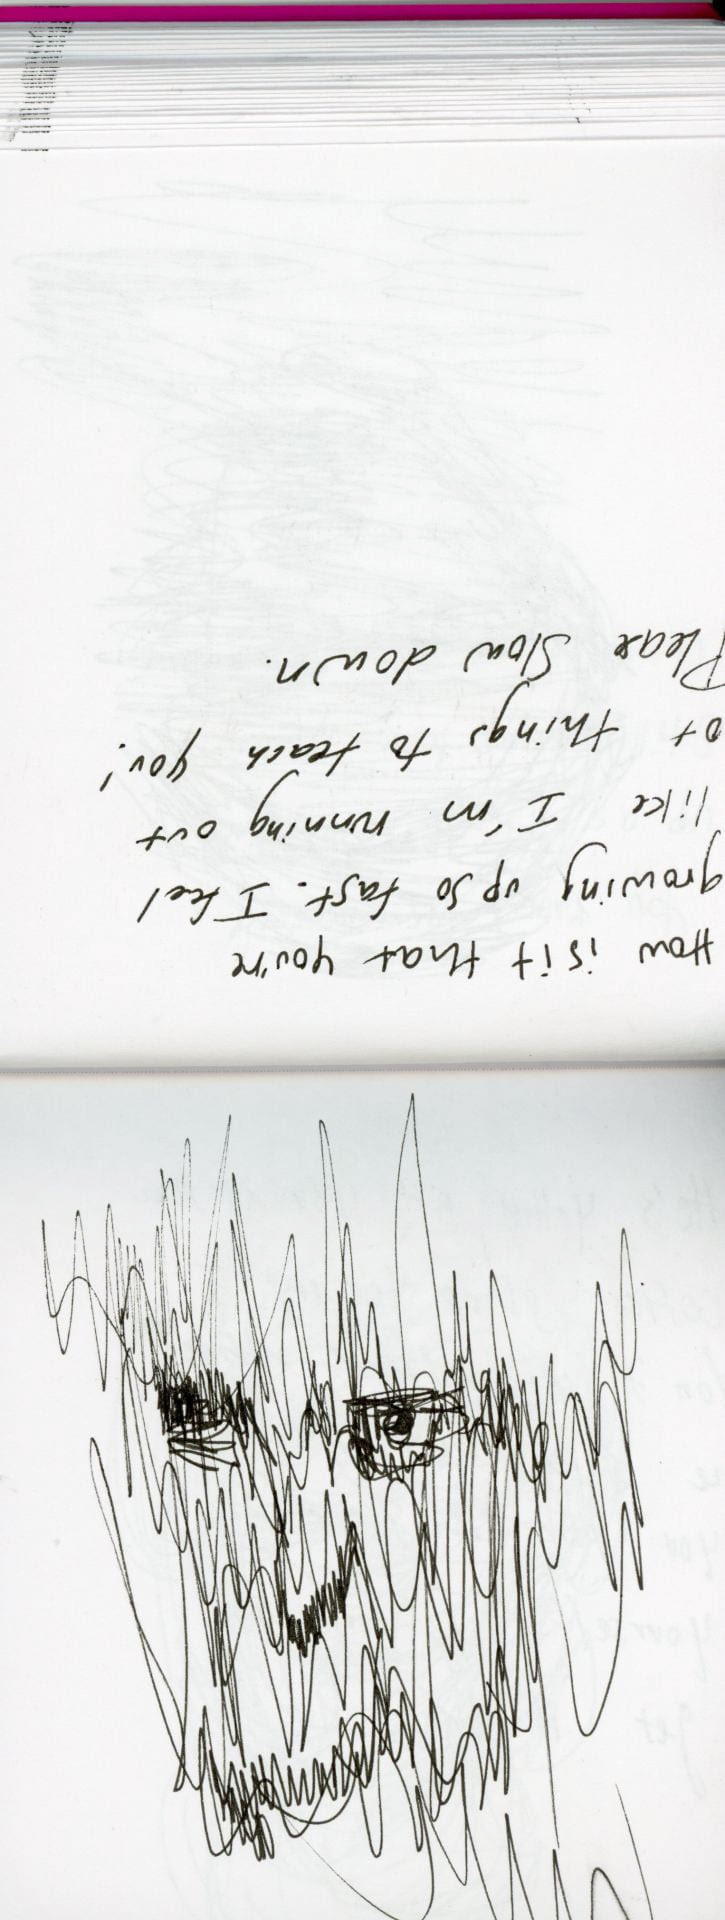 How is it that you're
growing up so fast. I feel
like I'm running out
of things to teach you!
Please slow down.